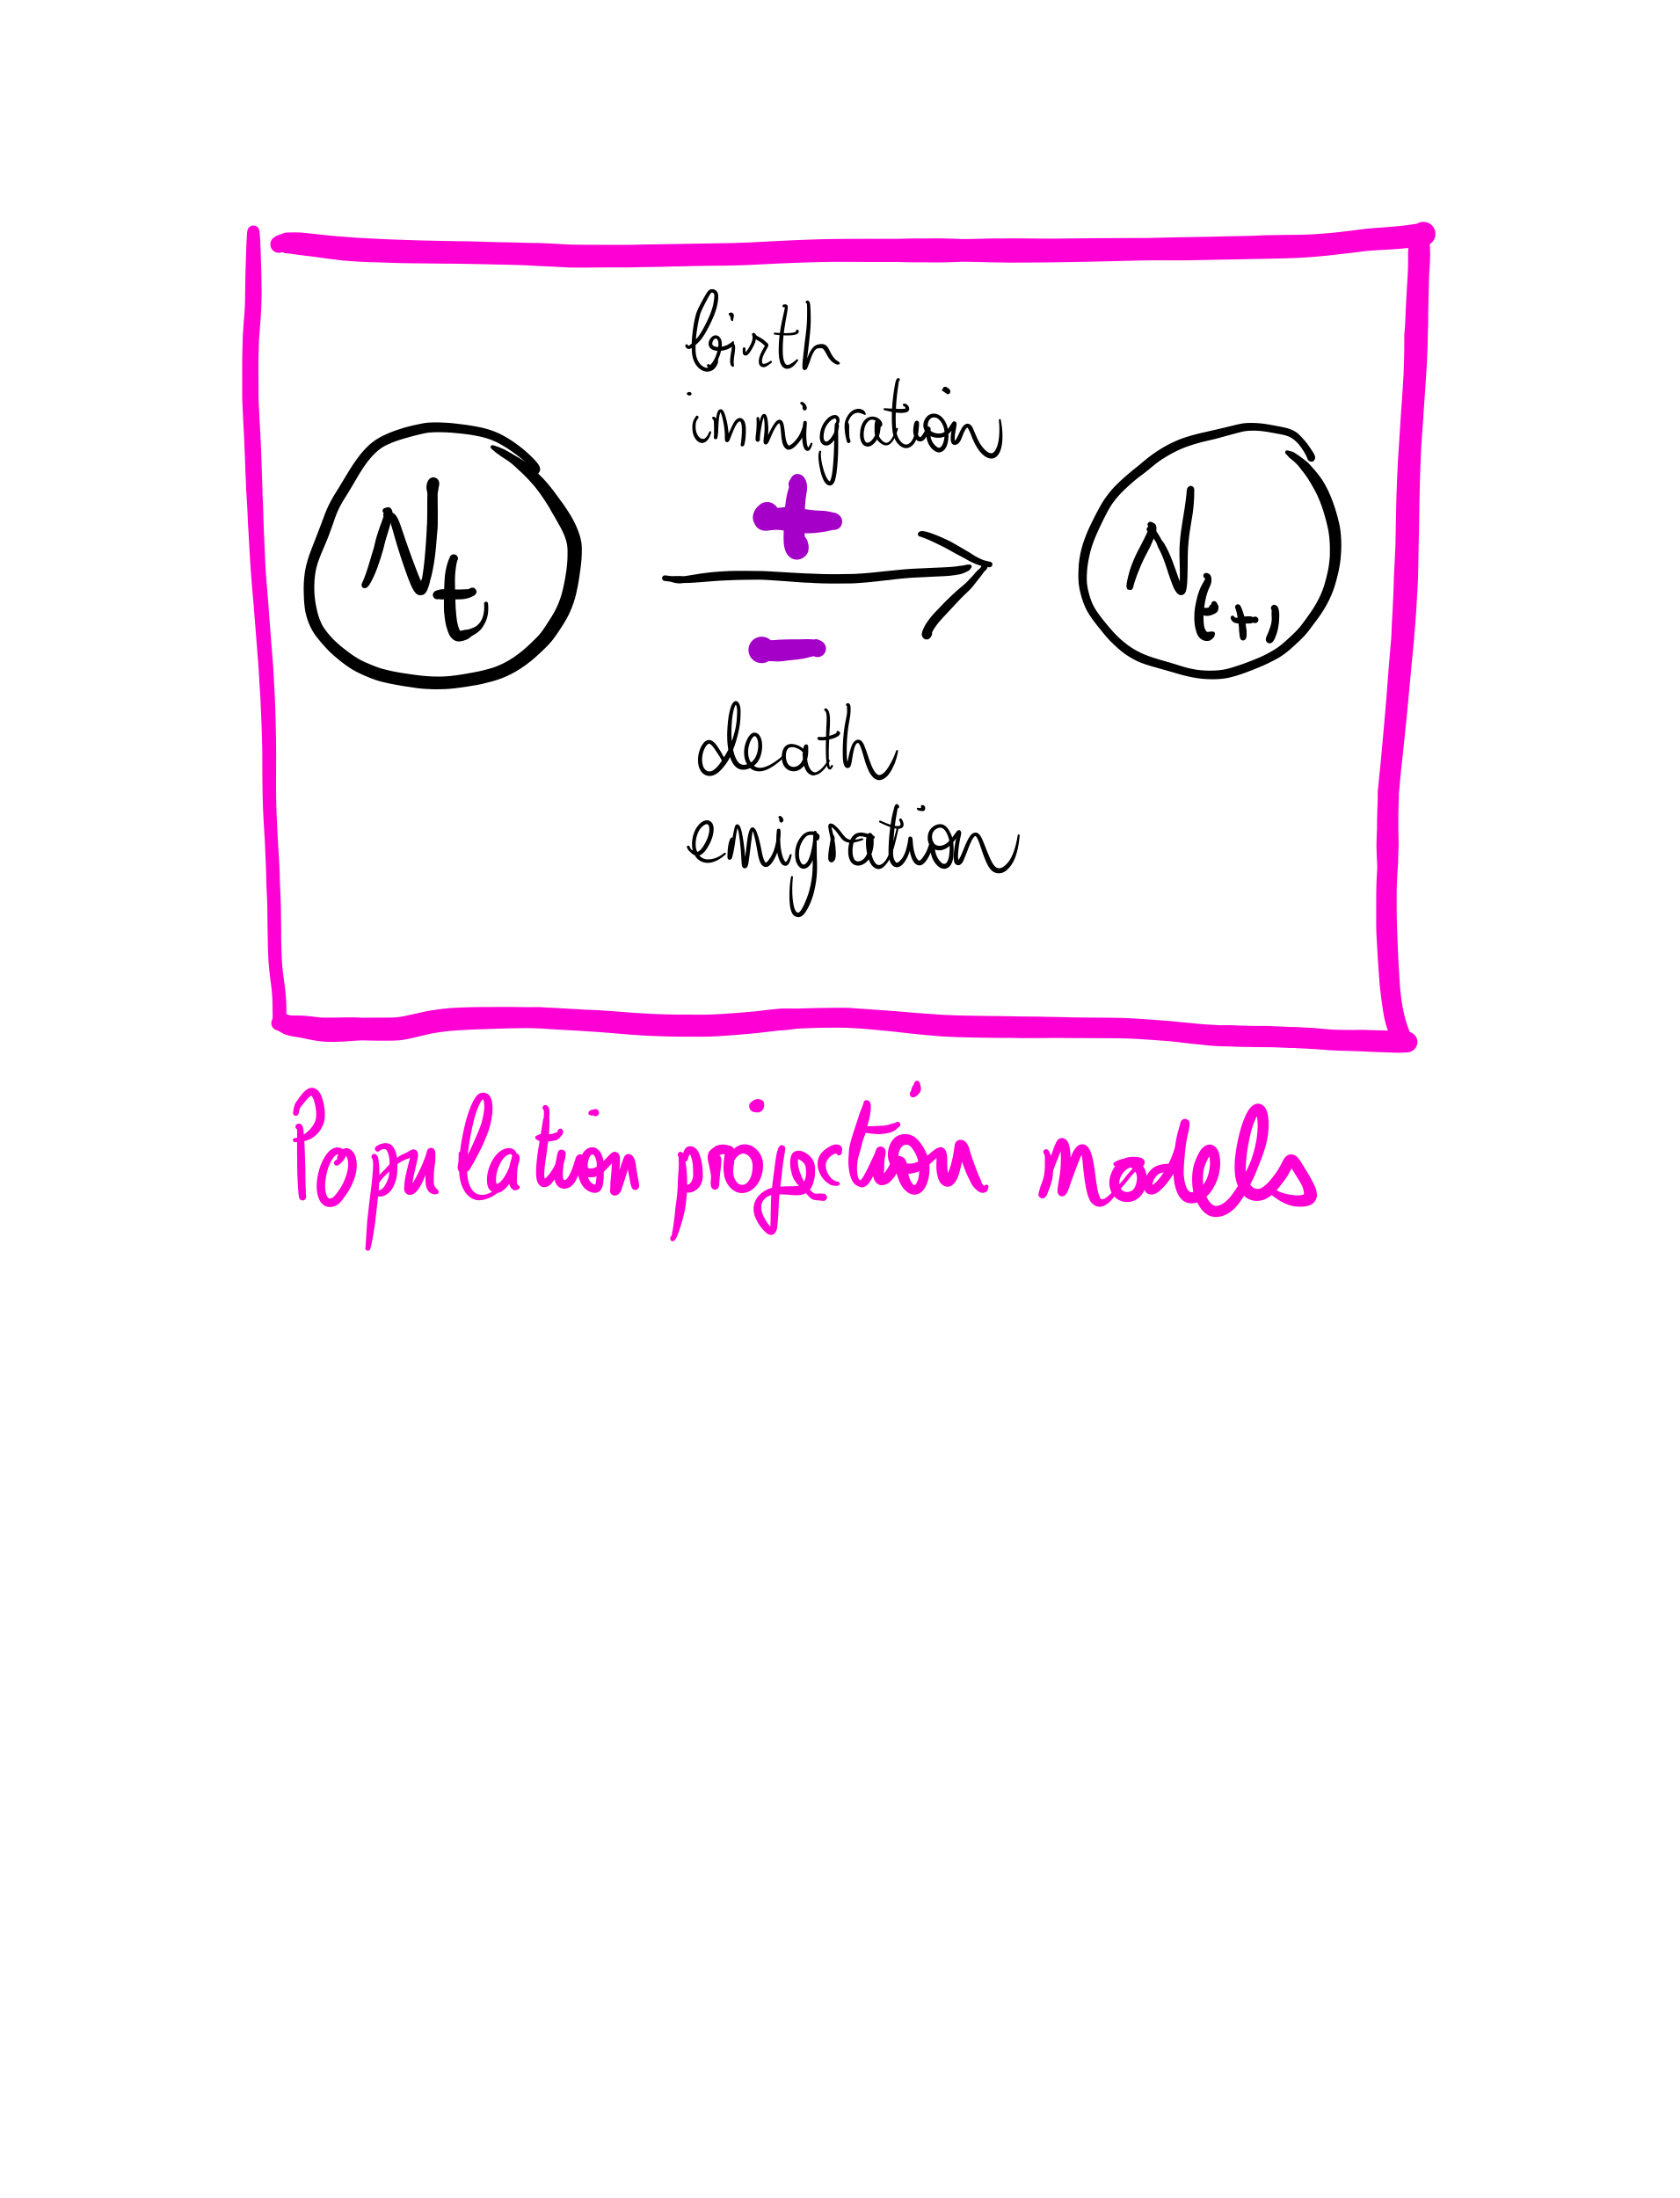 birth
immigration
N_t
+
N_t+1
-
death
emigration
Population projection model